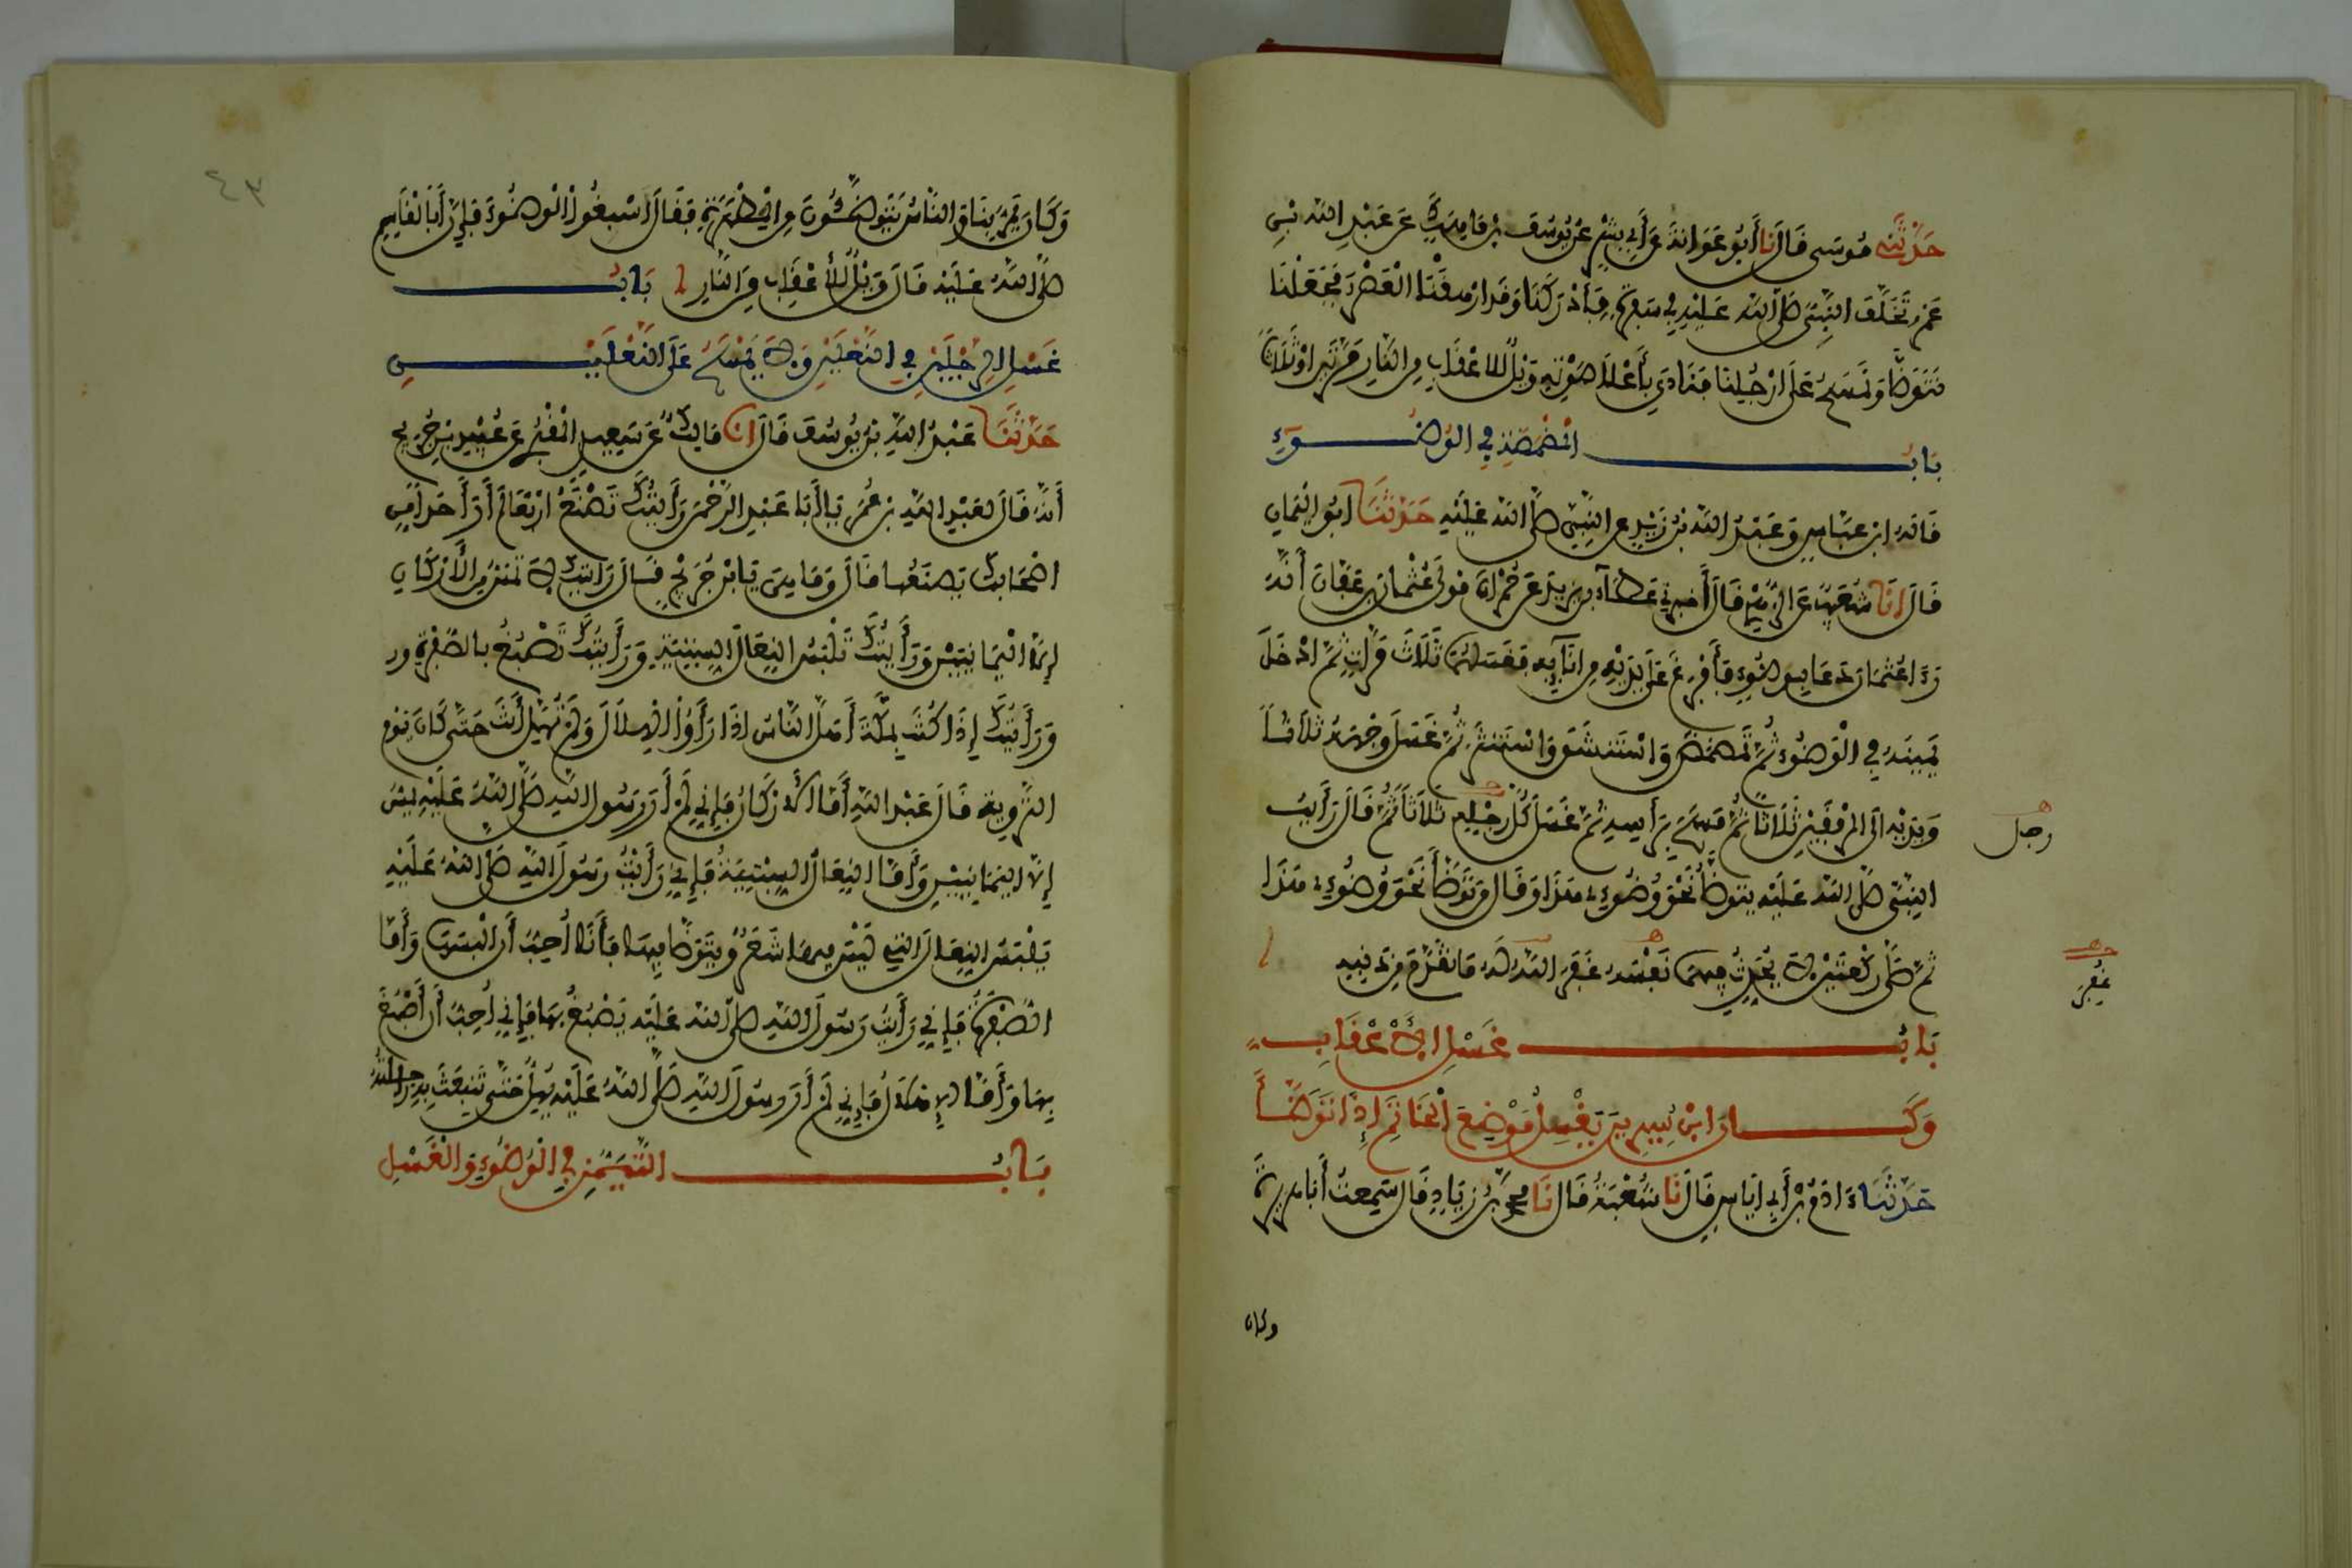 حَدَّثَنِي مُوسَى قَالَ نا أَبُو عَوَانَةَ عَنْ أَبِي بِشْرٍ عَنْ يُوسُفَ بْنِ مَاهِكٍ عَنْ عَبْدِ اللَّهِ بْنِ
عَمْرٍ تَخَلَّفَ النَّبِيُّ صَلَّى اللَّهُ عَلَيْهِ فِي سَفْرَةٍ فَأَدْرَكَنَا وَقَدْ ارْهَقْنَا الْعَصْرَ فَجَعَلْنَا
نَتَوَضَّأُ وَنَمْسَحُ عَلَى ارْجُلِنَا فَنَادَى بِأَعْلَى صَوْتِهِ وَيْلٌ لِلاعْقَابِ مِنَ النَّارِ مَرَّتَيْنِ اوْ ثَلَاثًا
بَابُ الْمَضْمَضَةِ فِي الْوُضُوءِ
قَالَهُ ابْنُ عَبَّاسٍ وَعَبْدُ اللَّهِ بْنُ زَيْدٍ عَنِ النَّبِيِّ صَلَّى اللَّهُ عَلَيْهِ حَدَّثَنَا ابُو الْيَمَانِ
قَالَ انَا شُعَيْبٌ عَنِ الزُّهْرِيِّ قَالَ أَخْبَرَنِي عَطَاءُ بْنُ يَزِيدَ عَنْ حُمْرَانَ مَوْلَى عُثْمَانَ بْنِ عَفَّانَ أَنَّهُ
رَءَا عُثْمَانَ دَعَا بِوَضُوءٍ فَأَفْرَغَ عَلَى يَدَيْهِ مِنْ انَائِهِ فَغَسَلَهُمَا ثَلَاثَ مَرَّاتٍ ثُمَّ ادْخَلَ
يَمِينَهُ فِي الْوَضُوءِ ثُمَّ تَمَضْمَضَ وَاسْتَنْشَقَ وَاسْتَنْثَرَ ثُمَّ غَسَلَ وَجْهَهُ ثَلَاثًا
وَيَدَيْهِ الَى الْمِرْفَقَيْنِ ثَلَاثًا ثُمَّ مَسَحَ بِرَأْسِهِ ثُمَّ غَسَلَ كُلَّ رِجْلِهِ ثَلَاثًا ثُمَّ قَالَ رَأَيْتُ
رجل
النَّبِيَّ صَلَّى اللَّهُ عَلَيْهِ يَتَوَضَّأُ نَحْوَ وُضُوءِي هَذَا وَقَالَ مَنْ تَوَضَّأَ نَحْوَ وُضُوءِي هَذَا
ثُمَّ صَلَّى رَكْعَتَيْنِ لَا يُحَدِّثُ فِيهِمَا نَفْسَهُ غَفَرَ اللَّهُ لَهُ مَا تَقَدَّمَ مِنْ ذَنْبِهِ
غُفِرَ
بَابُ غَسْلِ الْأَعْقَابِ
وَكَانَ ابْنُ سِيرِينَ يَغْسِلُ مَوْضِعَ الْخَاتَمِ إِذَا تَوَضَّأَ
حَدَّثَنَا ءَادَمُ بْنُ أَبِي ايَاسٍ قَالَ نَا شُعْبَةُ قَالَ نَا مُحَمَّدُ بْنُ زِيَادٍ قَالَ سَمِعْتُ أَبَا هُرَيْرَةَ
وكان
٤٣
وَكَانَ يَمُرُّ بِنَا وَالنَّاسُ يَتَوَضَّئُونَ مِنَ الْمِطْهَرَةِ فَقَالَ اسْبِغُوا الْوُضُوءَ فَإِنَّ أَبَا الْقَاسِمِ
صَلَّى اللَّهُ عَلَيْهِ قَالَ وَيْلٌ لِلْأَعْقَابِ مِنَ النَّارِ بَابُ
غَسْلِ الرِّجْلَيْنِ فِي النَّعْلَيْنِ وَلَا يَمْسَحُ عَلَى النَّعْلَيْنِ
حَدَّثَنَا عَبْدُ اللَّهِ بْنُ يُوسُفَ قَالَ انا مَالِكٌ عَنْ سَعِيدٍ الْمَقْبُرِيِّ عَنْ عُبَيْدِ بْنِ جُرَيْجٍ
أَنَّهُ قَالَ لِعَبْدِ اللَّهِ بْنِ عُمَرَ يَا أَبَا عَبْدِ الرَّحْمَنِ رَأَيْتُكَ تَصْنَعُ ارْبَعًا لَمْ أَرَ أَحَدًا مِنْ
اصْحَابِكَ يَصْنَعُهَا قَالَ وَمَا هِيَ يَا ابْنَ جُرَيْجٍ قَالَ رَأَيْتُكَ لَا تَمَسُّ مِنَ الْأَرْكَانِ
إِلَّا الْيَمَانِيَيْنِ وَرَأَيْتُكَ تَلْبَسُ النِّعَالَ السِّبْتِيَّةَ وَرَأَيْتُكَ تَصْبُغُ بِالصُّفْرَةِ ور
وَرَأَيْتُكَ إِذَا كُنْتَ بِمَكَّةَ أَهَلَّ النَّاسُ اذَا رَأَوُا الْهِلَالَ وَلَمْ تُهِلَّ أَنْتَ حَتَّى كَانَ يَوْمُ
التَّرْوِيَةِ قَالَ عَبْدُ اللَّهِ أَمَّا الْأَرْكَانُ فَإِنِّي لَمْ أَرَ رَسُولَ اللَّهِ صَلَّى اللَّهُ عَلَيْهِ يَمَسُّ
إِلَّا الْيَمَانِيَيْنِ وَأَمَّا النِّعَالُ السِّبْتِيَّةُ فَإِنِّي رَأَيْتُ رَسُولَ اللَّهِ صَلَّى اللَّهُ عَلَيْهِ
يَلْبَسُ النِّعَالَ الَّتِي لَيْسَ فِيهَا شَعَرٌ وَيَتَوَضَّأُ فِيهَا فَأَنَا أُحِبُّ أَنْ الْبَسَهَا وَأَمَّا
الصُّفْرَةُ فَإِنِّي رَأَيْتُ رَسُولَ اللَّهِ صَلَّى اللَّهُ عَلَيْهِ يَصْبُغُ بِهَا فَإِنِّي أُحِبُّ أَنْ أَصْبُغَ
بِهَا وَأَمَّا الْإِهْلَالُ فَإِنِّي لَمْ أَرَ رَسُولَ اللَّهِ صَلَّى اللَّهُ عَلَيْهِ يُهِلُّ حَتَّى تَنْبَعِثَ بِهِ رَاحِلَتُهُ
بَابُ التَّيَمُّنِ فِي الْوُضُوءِ وَالْغَسْلِ